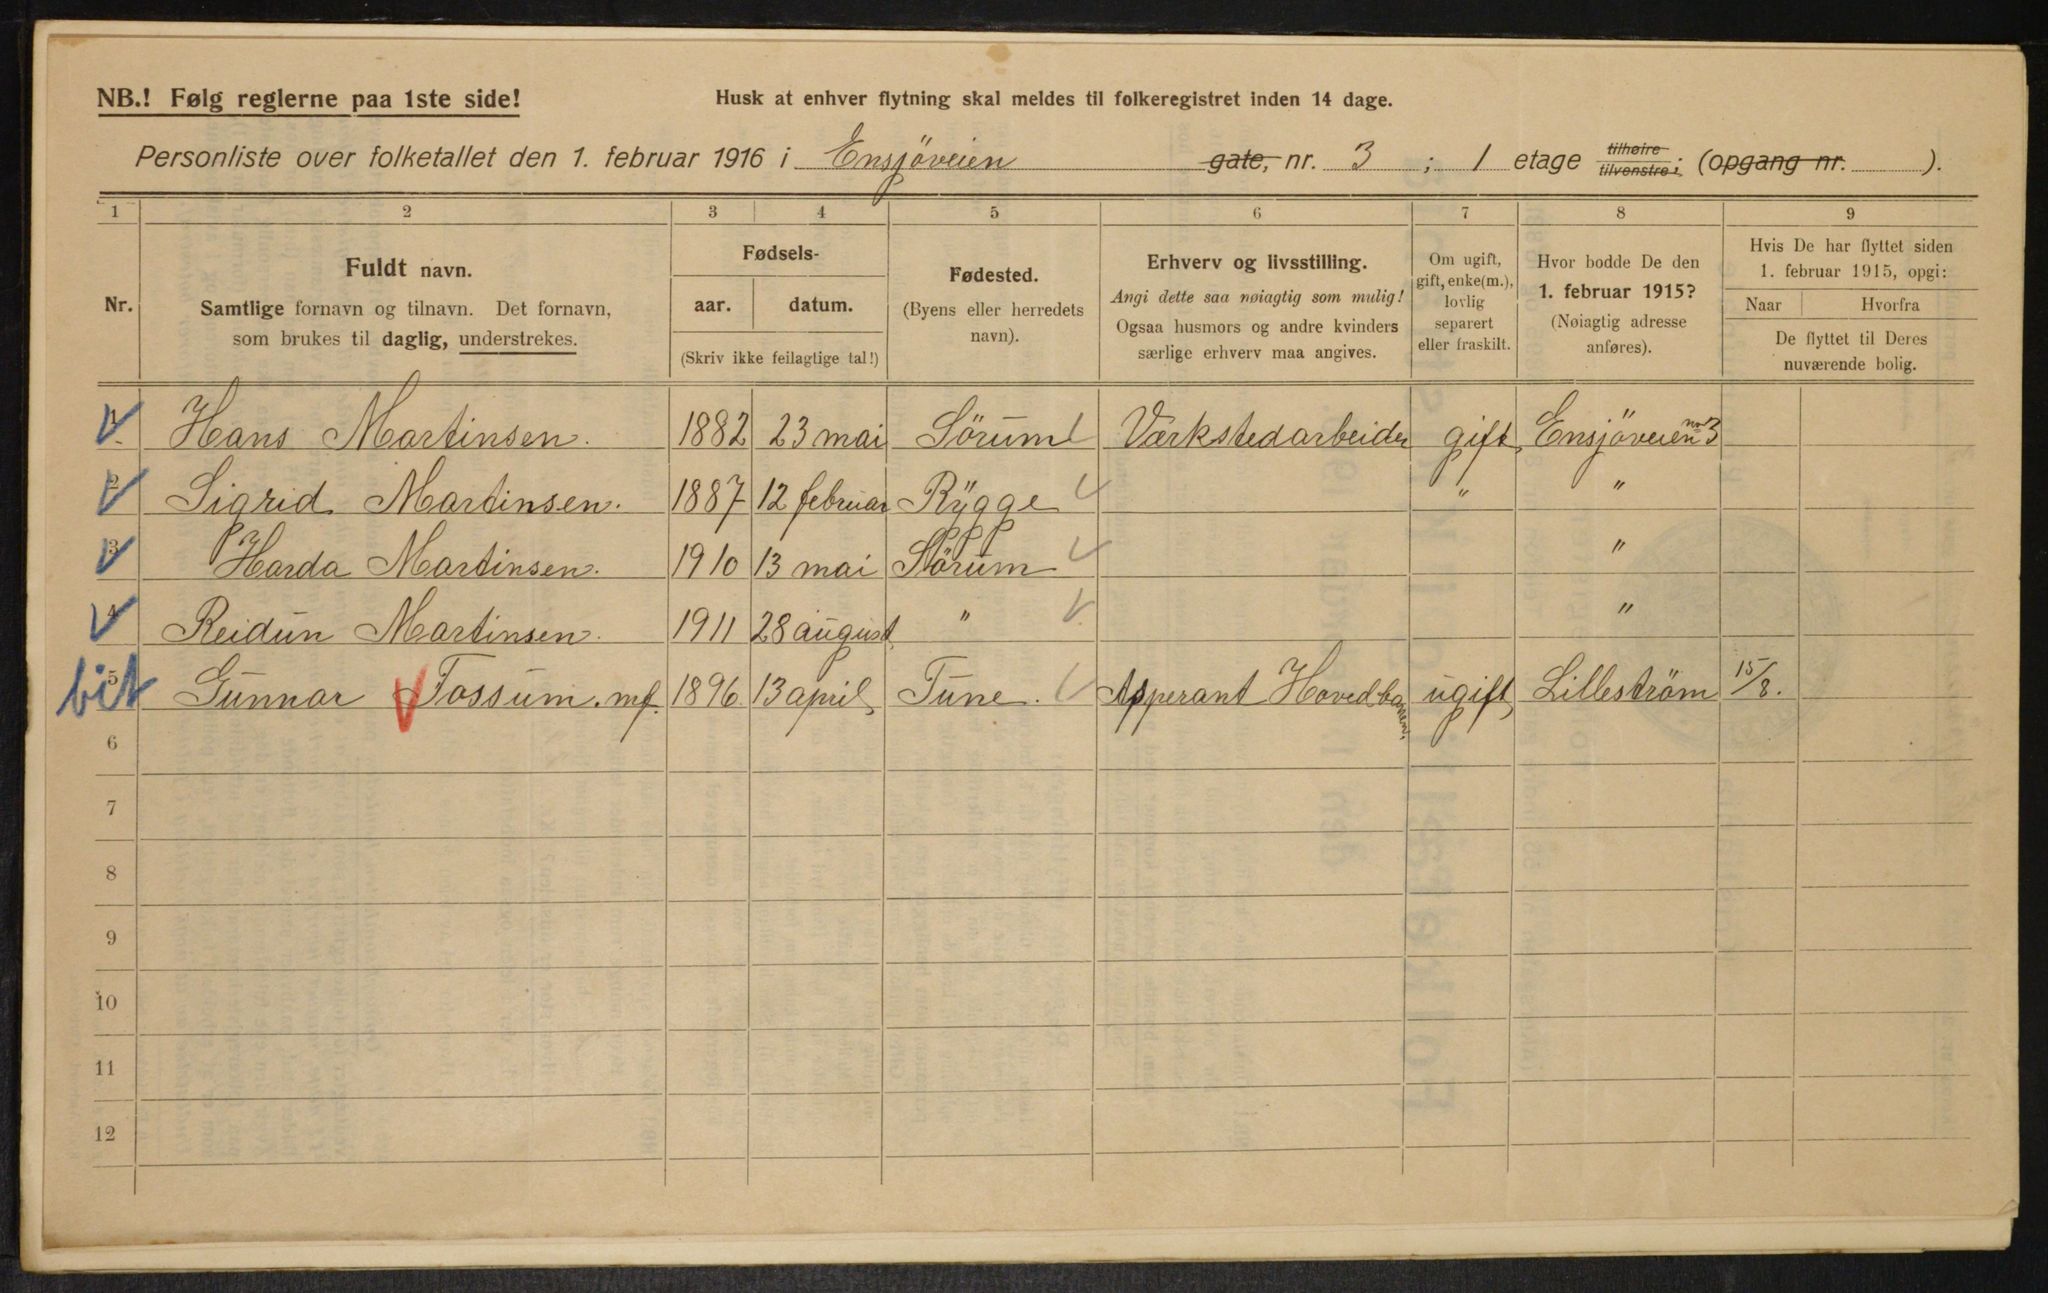 NB.! Følg reglerne paa 1ste side!
Husk at enhver flytning skal meldes til folkeregistret inden 14 dage.
Personliste over folketallet den 1. februar 1916 i Ensjöveien gate, nr. 3 ; 1 etage tilhøire tilvenstre; (opgang nr. ).
1 2 3 4 5 6 7 8 9
Nr.
Fuldt navn.
Samtlige fornavn og tilnavn. Det fornavn,
som brukes til daglig, understrekes.
Fødsels-
aar. datum.
(Skriv ikke feilagtige tal!)
Fødested.
(Byens eller herredets
navn).
Erhverv og livsstilling.
Angi dette saa nøiagtig som mulig!
Ogsaa husmors og andre kvinders
særlige erhverv maa angives.
Om ugift,
gift, enke(m.),
lovlig
separert
eller fraskilt.
Hvor bodde De den
1. februar 1915?
(Nøiagtig adresse
anføres).
Hvis De har flyttet siden
1. februar 1915, opgi:
Naar Hvorfra
De flyttet til Deres
nuværende bolig.
1 Hans Martinsen. 1882 23 mai Sörum Værkstedarbeider gift Ensjöveien no 3
2 Sigrid Martinsen. 1887 12 februar Rÿgge " "
3 Harda Martinsen. 1910 13 mai Sörum "
4 Reidun Martinsen. 1911 28 august " "
5 Gunnar Fossum. mf. 1896 13 april Tune. Asperant Hovedbanen. ugift Lilleström 15/8.
6
7
8
9
10
11
12